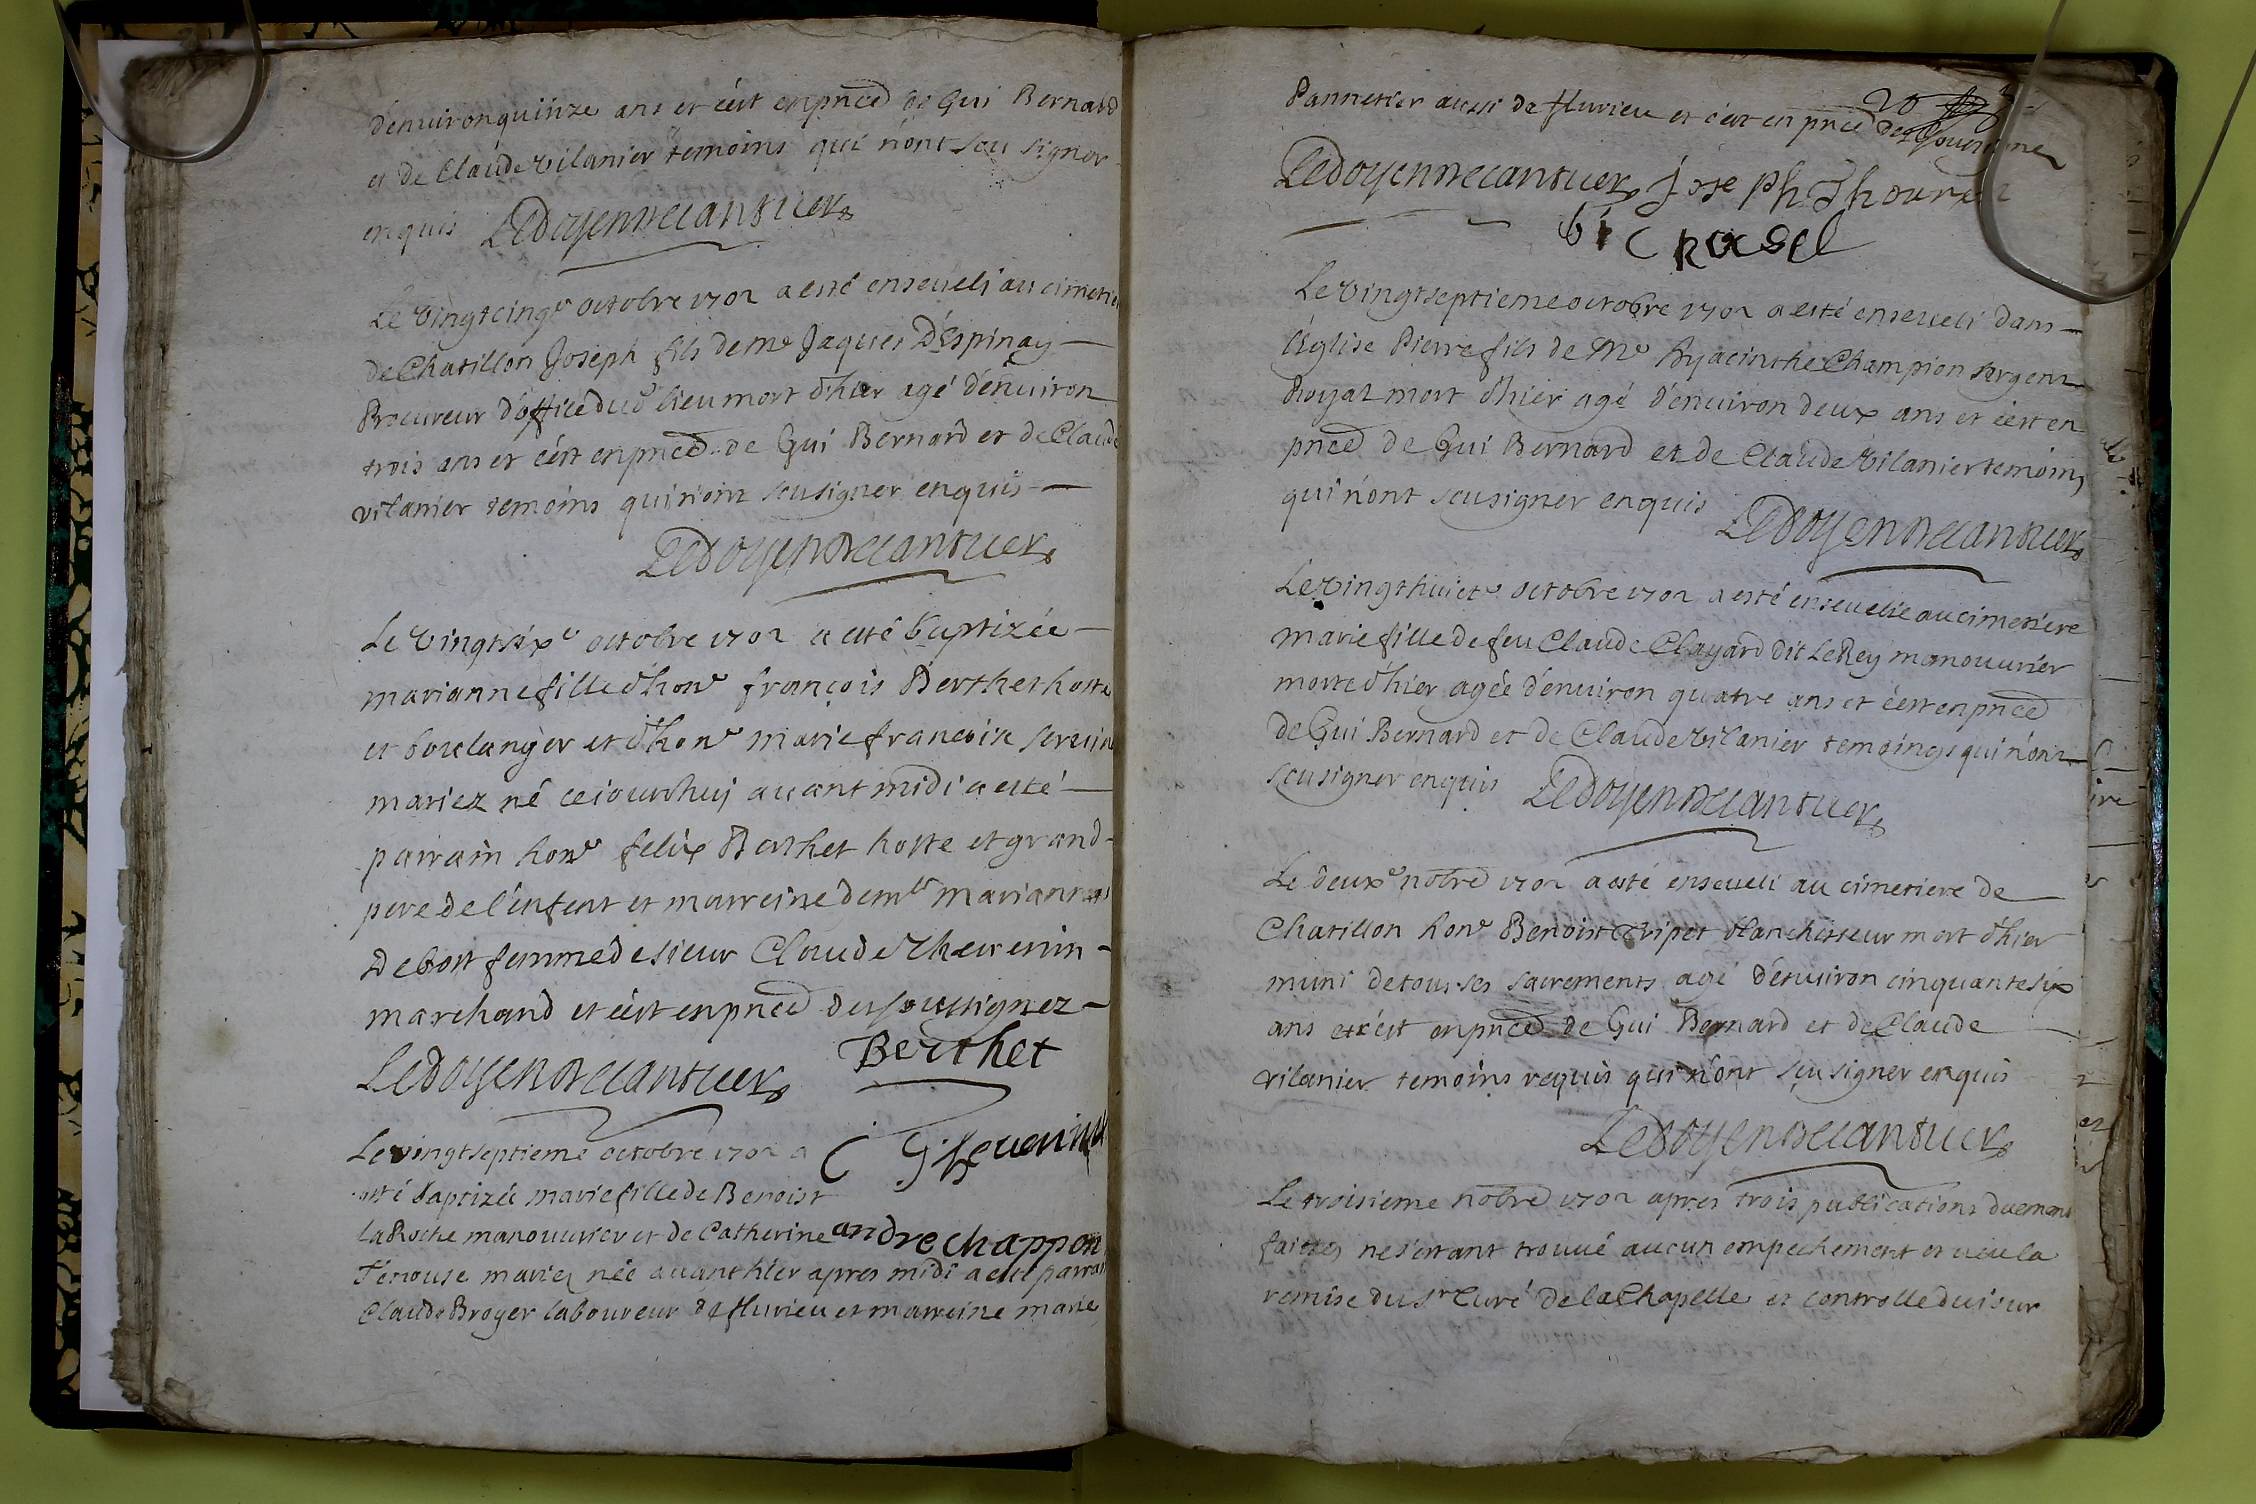 d'environ quinze ans et c'est en pnce de Gui Bernard
et de Claude Vilanier temoins qui n'ont sceu signer
enquis Ledoyen Decantuer
Le vingtcinqe octobre 1702 a esté enseveli au cimetie
de Chatillon Joseph fils de Me Jaques D'Espinay
Procureur d'office dud lieu mort d'hier agé d'environ
trois ans et c'est en pnce de Gui Bernard et de Claude
vilanier temoins qui n'ont sceu signer enquis
Ledoyen Decantuer
Le vingtsixe octobre 1702 a esté baptizée
marianne fille d'hone françois Berthet hoste
et boulanger et d'hone marie francoise
mariez né cejourdhuj avant midi a esté
parrain hone felix Berthet hoste et grand
pere de l'enfent et marreine demlle mariann
Debost femme de sieur Claude Chevenin
marchand et c'est en pnce des soussignez
Ledoyen Decantuer Berthet
Le vingtseptieme octobre 1702 a
esté baptizée marie fille de Benoist
laRoche manouvrier et de Catherine andre chappon
mariez née avanthier apres midi a esté parrain
Claude Broyer laboureur de fluvieu et marreine marie
Pannetier aussi de fluvieu et c'est en pnce des
20
Ledoyen Decantuer Joseph
Le vingtseptieme octobre 1702 a esté enseveli dans
l'Eglise Pierre fils de Me hyacinthe Champion sergent
Royal mort d'hier agé d'environ deux ans et c'est en
pnce de Gui Bernard et de Claude Vilanier temoins
qui n'ont sceu signer enquis Ledoyen Decantuer
Le vingthuicte octobre 1702 a esté ensevelie au cimetiere
marie fille de feu Claude Clayard dit LeRey manouvrier
morte d'hier agée d'environ quatre ans et c'est en pnce
de Gui Bernard et de Claude Vilanier temoings qui n'ont
sceu signer enquis Ledoyen Decantuer
Le deuxe nobre 1702 a esté enseveli au cimetiere de
Chatillon hone Benoist blanchisseur mort d'hier
muni de tous ses sacrements agé d'environ cinquantesix
ans et c'est en pnce de Gui Bernard et de Claude
vilanier temoins requis qui n'ont sceu signer enquis
Ledoyen Decantuer
Le troisieme nobre 1702 apres trois publications duement
faictes ne s'etant trouvé aucun empechement et veu la
remise du Sr Curé de la Chapelle et controlle d'ui sur